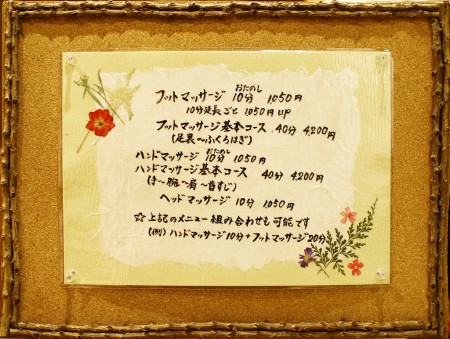 おためし
フットマッサージ 10分 1,050円
10分延長ごと 1,050円 UP
フットマッサージ基本コース 40分 4,200円
(足裏〜ふくらはぎ)
おためし
ハンドマッサージ 10分 1,050円
ハンドマッサージ基本コース 40分 4,200円
(手〜腕〜肩〜首すじ)
ヘッドマッサージ 10分 1,050円
☆上記のメニュー組み合わせも可能です
(例)ハンドマッサージ10分+フットマッサージ20分